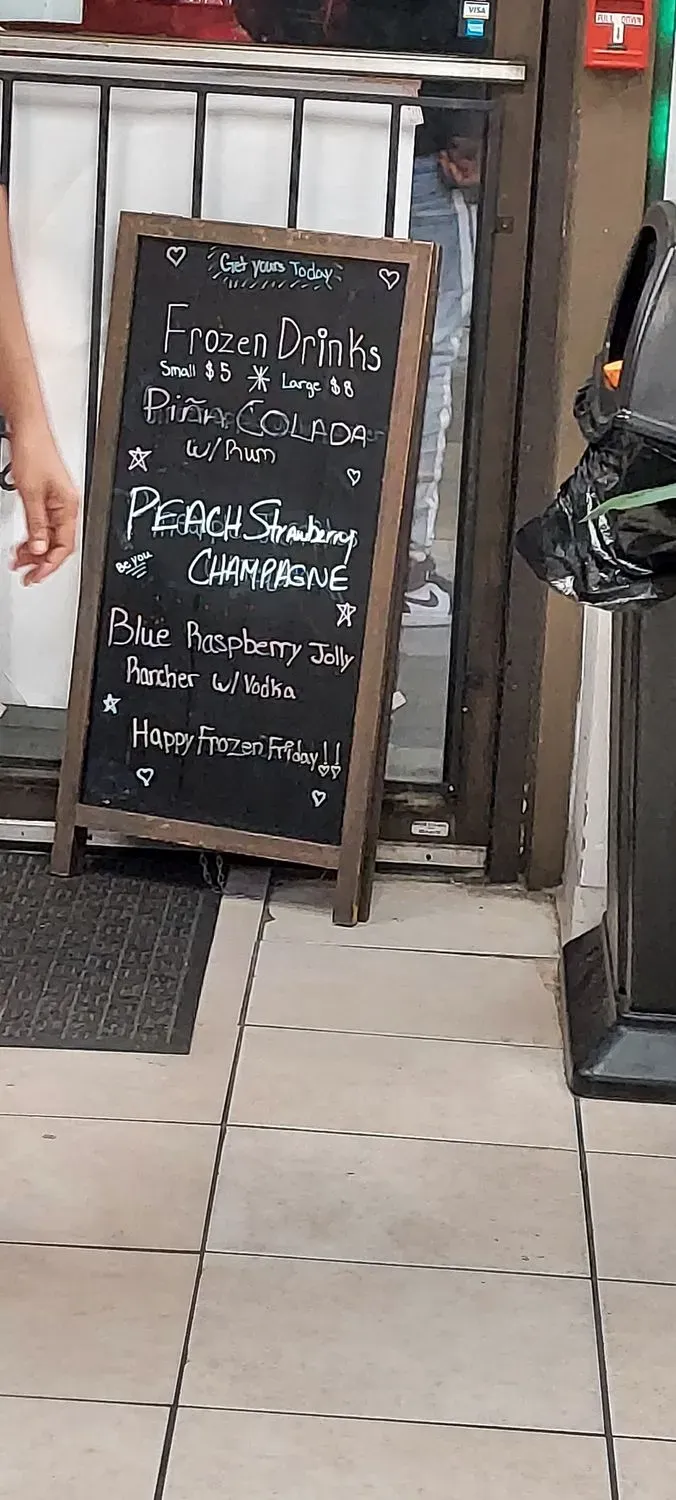 VISA
PULL DOWN
Get yours Today
Frozen Drinks
Small $5 Large $8
Piña COLADA
w/ Rum
PEACH Strawberry
Be you
CHAMPAGNE
Blue Raspberry Jolly
Rancher w/ Vodka
Happy Frozen Friday!!